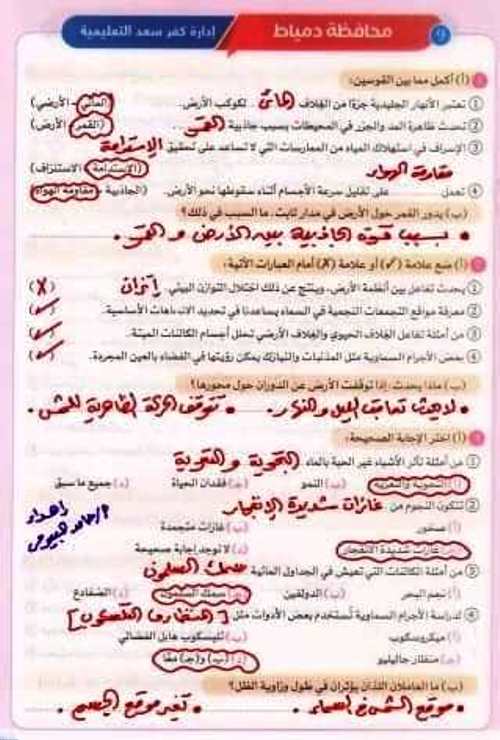 9 محافظة دمياط إدارة كفر سعد التعليمية
١ (أ) أكمل مما بين القوسين:
① تعتبر الأنهار الجليدية جزءًا من الغلاف المائى لكوكب الأرض. (المائي - الأرضي)
② تحدث ظاهرة المد والجزر في المحيطات بسبب جاذبية القمر. (القمر - الأرض)
③ الإسراف في استهلاك المياه من الممارسات التي لا تساعد على تحقيق الإستدامة
(الاستدامة - الاستنزاف)
مقاومة الهواء
④ تعمل على تقليل سرعة الأجسام أثناء سقوطها نحو الأرض. (الجاذبية - مقاومة الهواء)
(ب) يدور القمر حول الأرض في مدار ثابت، ما السبب في ذلك؟
• بسبب قوة الجاذبية بين الأرض و القمر.
٢ (أ) ضع علامة (✓) أو علامة (✗) أمام العبارات الآتية:
① يحدث تفاعل بين أنظمة الأرض، وينتج عن ذلك اختلال التوازن البيئي. إتزان (✗)
② معرفة مواقع التجمعات النجمية في السماء يساعدنا في تحديد الاتجاهات الأساسية. (✓)
③ من أمثلة تفاعل الغلاف الحيوي والغلاف الأرضي تحلل أجسام الكائنات الميتة. (✓)
④ بعض الأجرام السماوية مثل المذنبات والنيازك يمكن رؤيتها في الفضاء بالعين المجردة. (✓)
(ب) ماذا يحدث: إذا توقفت الأرض عن الدوران حول محورها؟
• لا يحدث تعاقب الليل والنهار. • تتوقف الحركة الظاهرية للشمس.
٣ (أ) اختر الإجابة الصحيحة:
① من أمثلة تأثر الأشياء غير الحية بالماء التجوية و التعرية
(أ) التجوية والتعرية (ب) النمو (ج) فقدان الحياة (د) جميع ما سبق
② تتكون النجوم من غازات شديدة الإنفجار
(أ) صخور (ب) غازات متجمدة
(ج) غازات شديدة الانفجار (د) لا توجد إجابة صحيحة
إعداد
أ/حامد البيومى
③ من أمثلة الكائنات التي تعيش في الجداول المائية سمك السلمون
(أ) نجم البحر (ب) الدولفين (ج) سمك السلمون (د) الضفادع
④ لدراسة الأجرام السماوية تُستخدم بعض الأدوات مثل [المنظار و التلسكوب]
(أ) ميكروسكوب (ب) تليسكوب هابل الفضائي
(ج) منظار جاليليو (د) (ب) و(ج) معًا
(ب) ما العاملان اللذان يؤثران في طول وزاوية الظل؟
• موقع الشمس فى السماء. • تغير موقع الجسم.